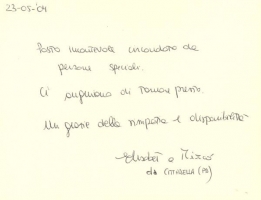 23-08-'09
Posto incantevole circondato da
persone speciali.
Ci auguriamo di tornare presto.
Un grazie della simpatia e disponibilità
Elisabet e Mirco
da CITTADELLA (PD)